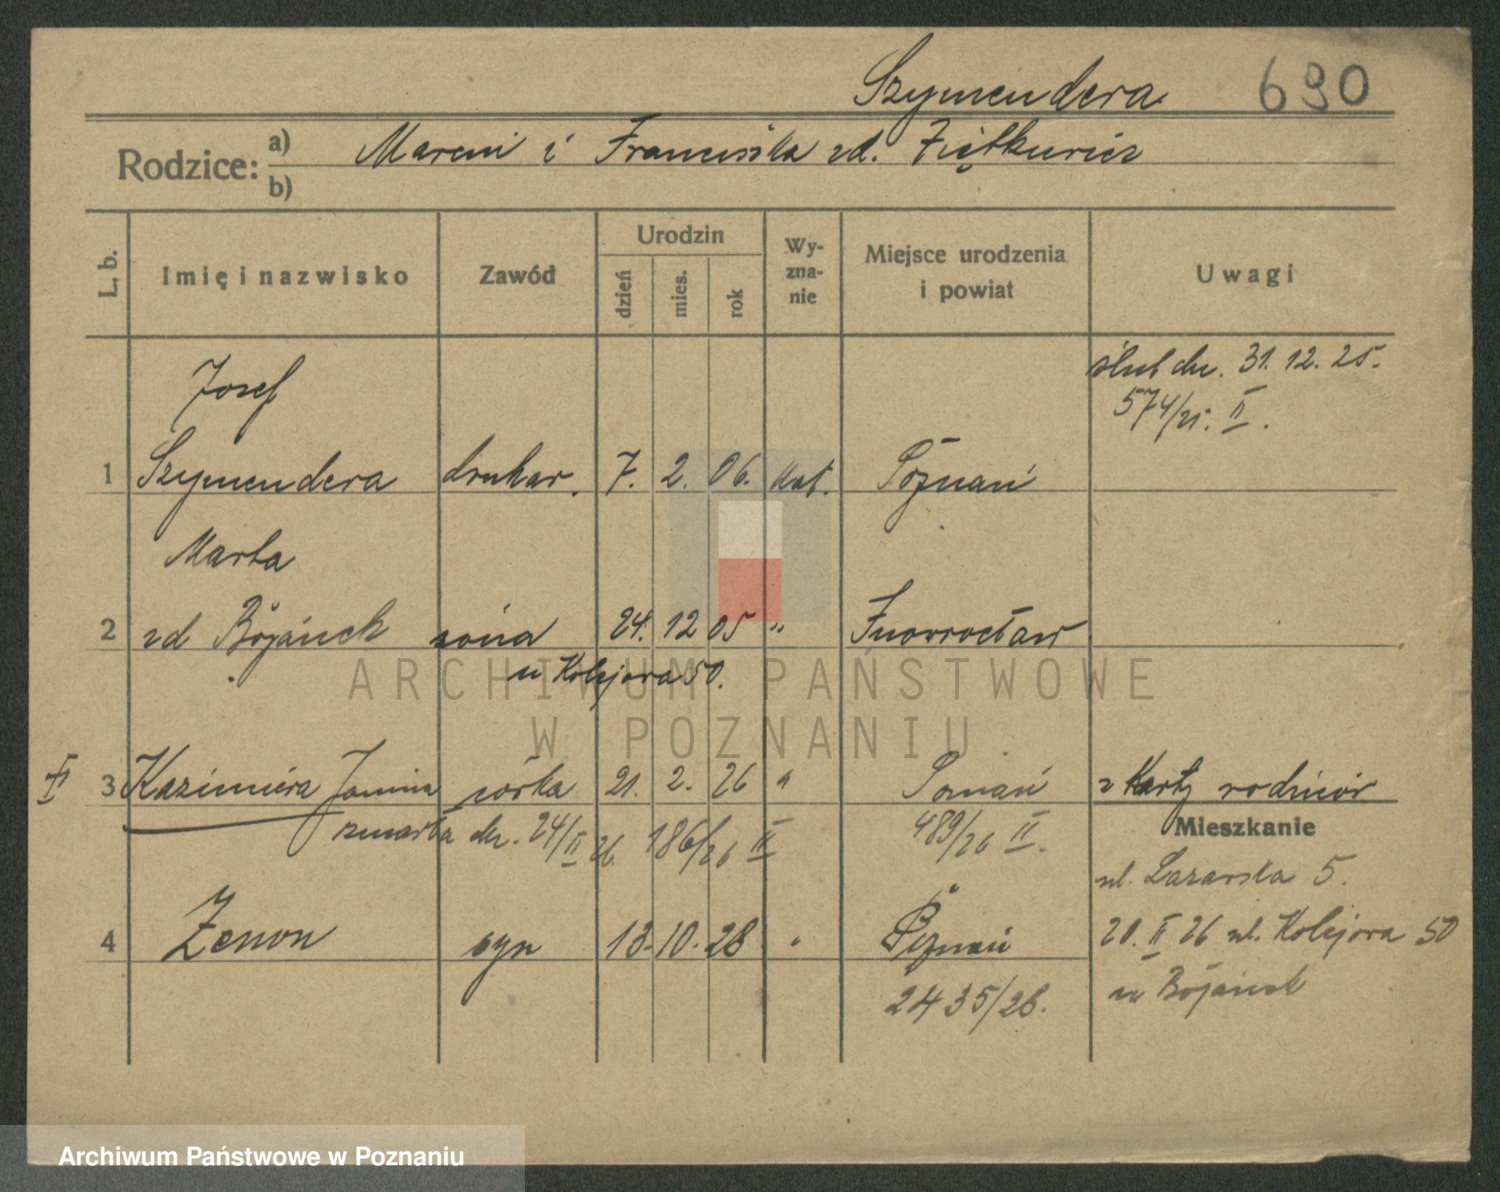 Szymendera 690
Rodzice: a) Marcin i Franciszka zd. Ziętkiewicz
b)
L. b. Imię i nazwisko Zawód Urodzin dzień mies. rok Wy-zna-nie Miejsce urodzenia i powiat Uwagi
ślub dn. 31. 12. 25.
574/25. II.
Józef
1 Szymendera drukar. 7. 2. 06. kat. Poznań
Marta
2 zd Bojanek żona 24. 12 05 " Inowrocław
u Kolejowa 50.
II 3 Kazimiera Janina córka 21. 2. 26 " Poznań z Karty rodziców
zmarła dn. 24/II 26. 186/26 II 489/26 II. Mieszkanie
ul. Łazarska 5.
4 Zenon syn 13. 10. 28 " Poznań 20. II 26 ul. Kolejowa 50
2435/28. u Bojanek
ARCHIWUM PAŃSTWOWE
W POZNANIU
Archiwum Państwowe w Poznaniu